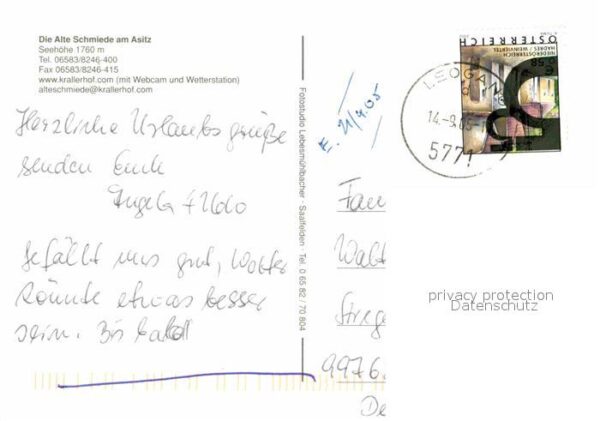 Die Alte Schmiede am Asitz
Seehöhe 1760 m
Tel. 06583/8246-400
Fax 06583/8246-415
www.krallerhof.com (mit Webcam und Wetterstation)
alteschmiede@krallerhof.com
Herzliche Urlaubsgrüße
senden Euch
Angela
Gefällt uns gut, Wetter
könnte etwas besser
sein. Bis bald
Fotostudio Lebesmühlbacher · Saalfelden · Tel. 0 65 82 / 70 804
E. 21/9.05
LEOGANG
14.-9.05
5771
ÖSTERREICH
NIEDERÖSTERREICH
HADRES / WEINVIERTEL
0,58
Fam
Walt
Striege
9976
De
privacy protection
Datenschutz